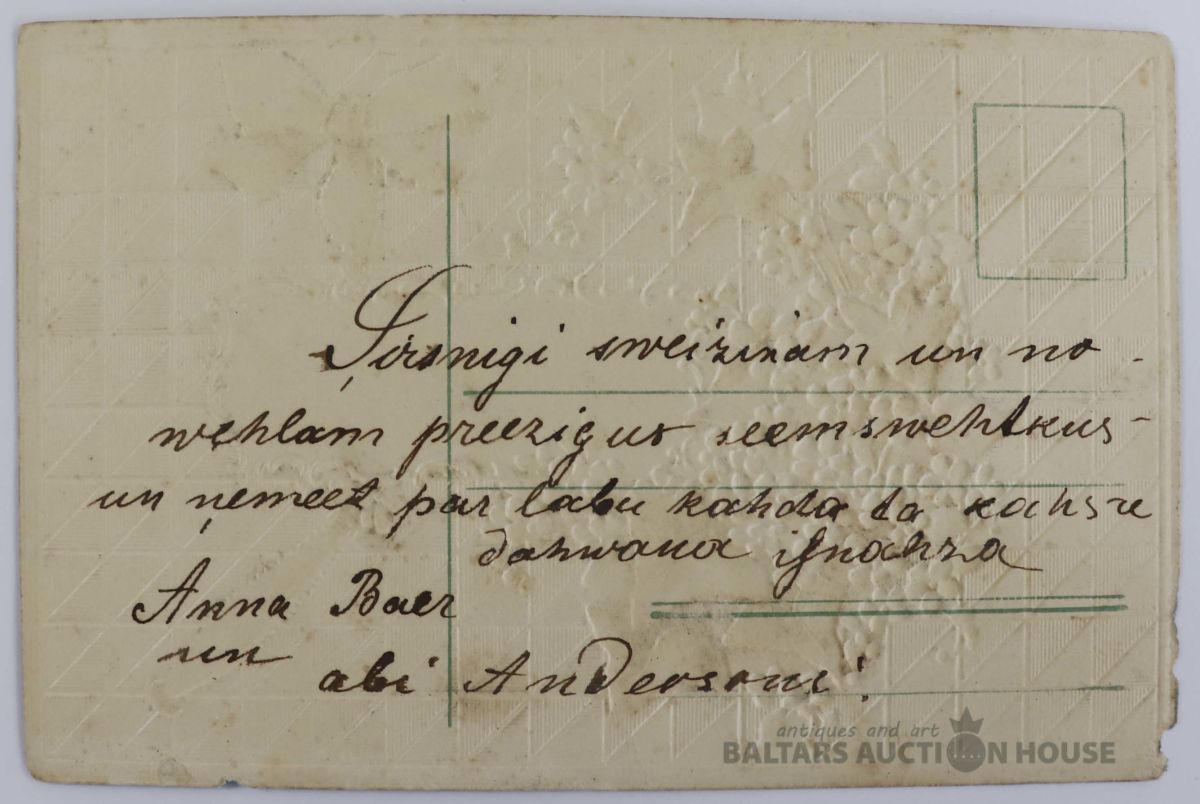 Şirsnigi sweizinam un no-
wehlam preezigus seemswehtkus-
un ņemeet par labu kahda ta
dahwana iſnahza
Anna Baer
un
abi Andersoni!
antiques and art
BALTARS AUCTION HOUSE